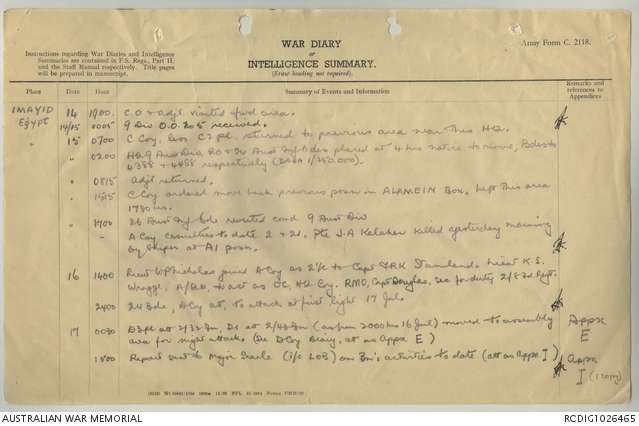 WAR DIARY
or
INTELLIGENCE SUMMARY.
(Erase heading not required).
Army Form C. 2118.
Instructions regarding War Diaries and Intelligence
Summaries are contained in F.S. Regs., Part II.
and the Staff Manual respectively. Title pages
will be prepared in manuscript.
Place Date Hour Summary of Events and Information Remarks and references to Appendices
IMAYID 14 1900. C.O + adjt visited fwd area.
Egypt 14/15 0005 9 Div O.O. 205 received.
" 15 0700 C Coy, less C7 pl. returned to previous area near this HQ.
" 0200 HQ 9 Aust Div, 20 + 24 Aust Inf Bdes placed at 4 hrs notice to move, Bdes to
4388 + 4488 respectively (1/250.000).
" 0815 Adjt returned.
" 1515 C Coy ordered move back previous posn in ALAMEIN Box. Left this area
1730 hrs.
" 1700 26 Aust Inf Bde reverted comd 9 Aust Div
- A Coy casualties to date 2 + 2d. Pte J.A Kelaher killed yesterday morning
by sniper at A1 posn.
16 1400 Lieut joined A Coy as 2i/c to Capt Lieut K.S.
to act as OC, HQ Coy. RMO, Capt Douglas, for duty 2/8 Fd Regt.
2400 24 Bde, D Coy at, to attack at first light 17 Jul.
17 0030 D3 pl at 2/32 Bn, D1 at 2/43 Bn (as from 2000 hrs 16 Jul) moved to assembly
area for night attack. (See D Coy Diary, att as Appx E) Appx
E
1800 Report sent to Major (i/c LOB) on Bn's activities to date (att as Appx I) Appx
I (1 copy)
AUSTRALIAN WAR MEMORIAL
RCDIG1026465